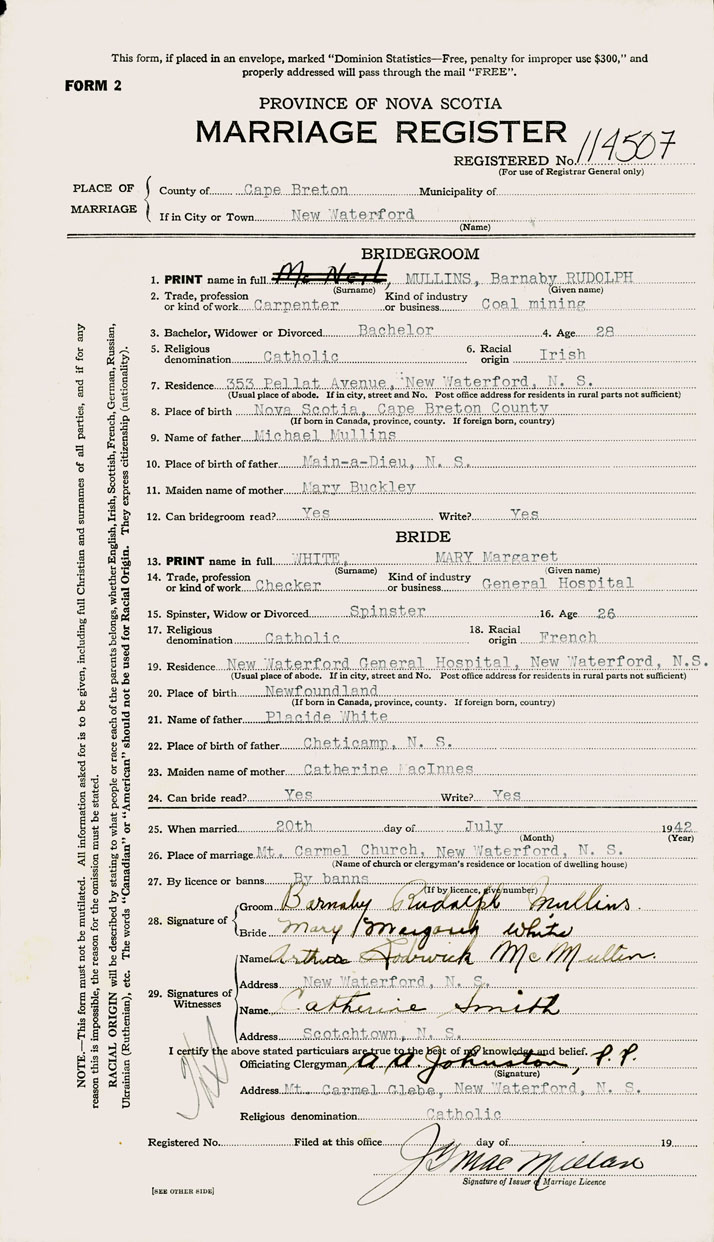 This form, if placed in an envelope, marked "Dominion Statistics—Free, penalty for improper use $300," and
properly addressed will pass through the mail "FREE".
FORM 2
PROVINCE OF NOVA SCOTIA
MARRIAGE REGISTER
REGISTERED No. 114507
(For use of Registrar General only)
PLACE OF MARRIAGE
County of Cape Breton Municipality of
If in City or Town New Waterford
(Name)
BRIDEGROOM
1. PRINT name in full Mc Neil, MULLINS, Barnaby RUDOLPH
(Surname) (Given name)
2. Trade, profession or kind of work Carpenter Kind of industry or business Coal mining
3. Bachelor, Widower or Divorced Bachelor 4. Age 28
5. Religious denomination Catholic 6. Racial origin Irish
7. Residence 353 Pellat Avenue, New Waterford, N. S.
(Usual place of abode. If in city, street and No. Post office address for residents in rural parts not sufficient)
8. Place of birth Nova Scotia, Cape Breton County
(If born in Canada, province, county. If foreign born, country)
9. Name of father Michael Mullins
10. Place of birth of father Main-a-Dieu, N. S.
11. Maiden name of mother Mary Buckley
12. Can bridegroom read? Yes Write? Yes
BRIDE
13. PRINT name in full WHITE, MARY Margaret
(Surname) (Given name)
14. Trade, profession or kind of work Checker Kind of industry or business General Hospital
15. Spinster, Widow or Divorced Spinster 16. Age 26
17. Religious denomination Catholic 18. Racial origin French
19. Residence New Waterford General Hospital, New Waterford, N.S.
(Usual place of abode. If in city, street and No. Post office address for residents in rural parts not sufficient)
20. Place of birth Newfoundland
(If born in Canada, province, county. If foreign born, country)
21. Name of father Placide White
22. Place of birth of father Cheticamp, N. S.
23. Maiden name of mother Catherine MacInnes
24. Can bride read? Yes Write? Yes
25. When married 20th day of July 1942
(Month) (Year)
26. Place of marriage Mt. Carmel Church, New Waterford, N. S.
(Name of church or clergyman's residence or location of dwelling house)
27. By licence or banns By banns
(If by licence, give number)
28. Signature of
Groom Barnaby Rudolph Mullins
Bride Mary Margaret White
29. Signatures of Witnesses
Name Arthur Rodrwick McMullin
Address New Waterford, N. S.
Name Catherine Smith
Address Scotchtown, N. S.
I certify the above stated particulars are true to the best of my knowledge and belief.
Officiating Clergyman A A Johnston, P.P.
(Signature)
Address Mt. Carmel Glebe, New Waterford, N. S.
Religious denomination Catholic
Registered No. Filed at this office day of 19
Signature of Issuer of Marriage Licence
[SEE OTHER SIDE]
NOTE.—This form must not be mutilated. All information asked for is to be given, including full Christian and surnames of all parties, and if for any
reason this is impossible, the reason for the omission must be stated.
RACIAL ORIGIN will be described by stating to what people or race each of the parents belongs, whether English, Irish, Scottish, French, German, Russian,
Ukrainian (Ruthenian), etc. The words "Canadian" or "American" should not be used for Racial Origin. They express citizenship (nationality).